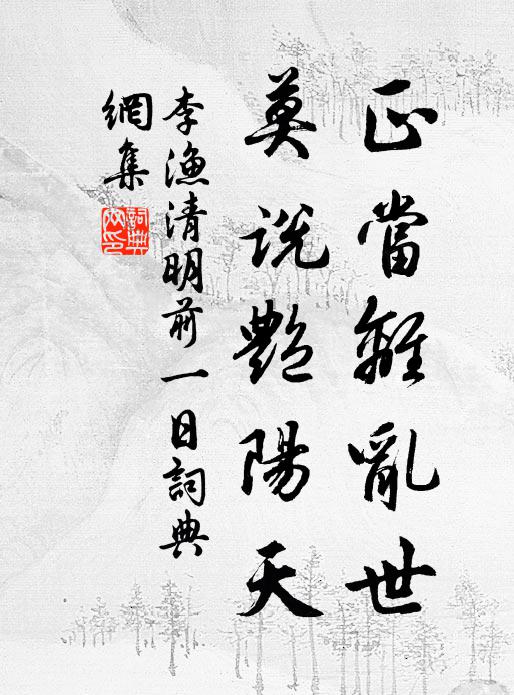 正當離亂世
莫說艷陽天
李漁清明前一日詞典
網集
詞典網印